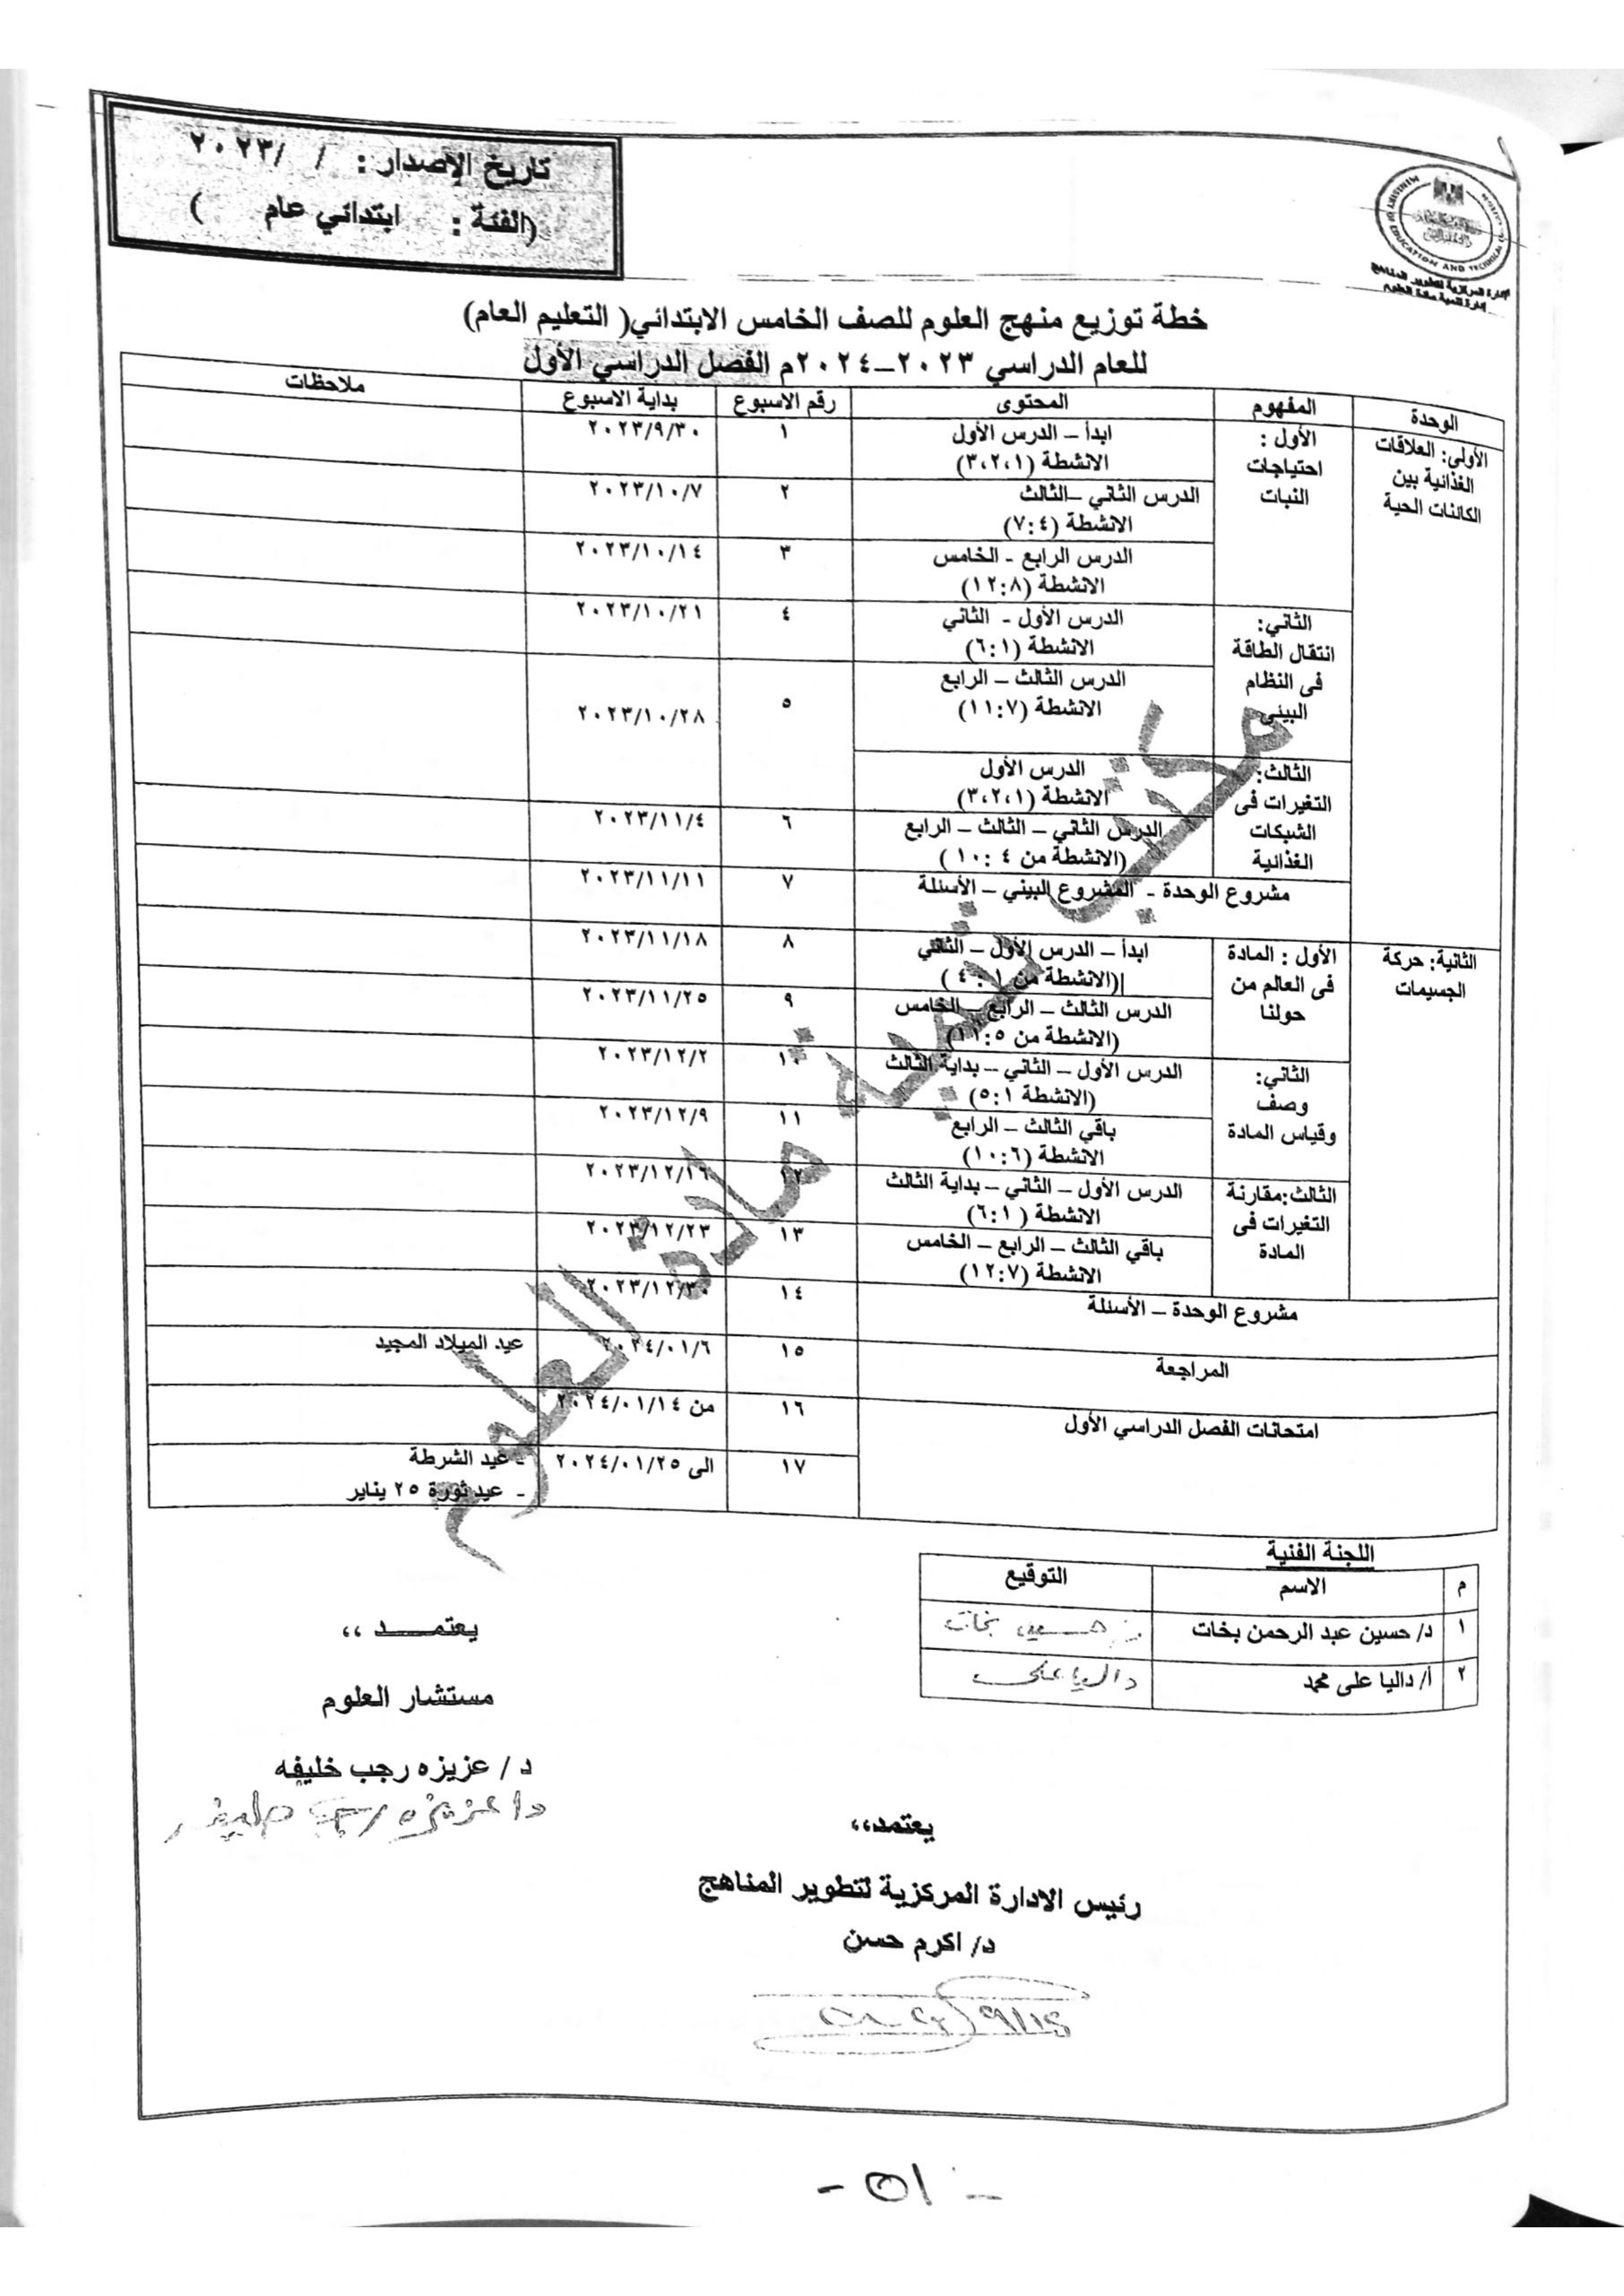 تاريخ الإصدار : / /٢٠٢٣
(الفئة : ابتدائي عام )
MINISTRY OF EDUCATION AND TECHNICAL EDUCATION
الإدارة المركزية لتطوير المناهج
إدارة تنمية مادة العلوم
خطة توزيع منهج العلوم للصف الخامس الابتدائي( التعليم العام)
للعام الدراسي ٢٠٢٣–٢٠٢٤م الفصل الدراسي الأول
الوحدة المفهوم المحتوى رقم الاسبوع بداية الاسبوع ملاحظات
الأولى: العلاقات
الغذائية بين
الكائنات الحية
الأول :
احتياجات
النبات
ابدأ – الدرس الأول
الانشطة (٣،٢،١)
١ ٢٠٢٣/٩/٣٠
الدرس الثاني –الثالث
الانشطة (٧:٤)
٢ ٢٠٢٣/١٠/٧
الدرس الرابع - الخامس
الانشطة (١٢:٨)
٣ ٢٠٢٣/١٠/١٤
الثاني:
انتقال الطاقة
فى النظام
البيئى
الدرس الأول - الثاني
الانشطة (٦:١)
٤ ٢٠٢٣/١٠/٢١
الدرس الثالث – الرابع
الانشطة (١١:٧)
٥ ٢٠٢٣/١٠/٢٨
الثالث:
التغيرات فى
الشبكات
الغذائية
الدرس الأول
الانشطة (٣،٢،١)
الدرس الثاني – الثالث – الرابع
(الانشطة من ٤ :١٠ )
٦ ٢٠٢٣/١١/٤
مشروع الوحدة - المشروع البيني – الأسئلة
٧ ٢٠٢٣/١١/١١
الثانية: حركة
الجسيمات
الأول : المادة
فى العالم من
حولنا
ابدأ – الدرس الأول – الثاني
(الانشطة من ١ :٤ )
٨ ٢٠٢٣/١١/١٨
الدرس الثالث – الرابع – الخامس
(الانشطة من ١١:٥)
٩ ٢٠٢٣/١١/٢٥
الثاني:
وصف
وقياس المادة
الدرس الأول – الثاني – بداية الثالث
(الانشطة ٥:١)
١٠ ٢٠٢٣/١٢/٢
باقي الثالث – الرابع
الانشطة (١٠:٦)
١١ ٢٠٢٣/١٢/٩
الثالث:مقارنة
التغيرات فى
المادة
الدرس الأول – الثاني – بداية الثالث
الانشطة ( ٦:١)
١٢ ٢٠٢٣/١٢/١٦
باقي الثالث – الرابع – الخامس
الانشطة (١٢:٧)
١٣ ٢٠٢٣/١٢/٢٣
مشروع الوحدة – الأسئلة
١٤ ٢٠٢٣/١٢/٣٠
المراجعة
١٥ ٢٠٢٤/٠١/٦ عيد الميلاد المجيد
امتحانات الفصل الدراسي الأول
١٦ من ٢٠٢٤/٠١/١٤
١٧ الى ٢٠٢٤/٠١/٢٥
- عيد الشرطة
- عيد ثورة ٢٥ يناير
مكتب تنمية مادة العلوم
اللجنة الفنية
م الاسم التوقيع
١ د/ حسين عبد الرحمن بخات د. حسين بخات
٢ أ/ داليا على محمد داليا على
يعتمـــــد ،،
مستشار العلوم
د / عزيزه رجب خليفه
د/ عزيزه رجب خليفه
يعتمد،،
رئيس الادارة المركزية لتطوير المناهج
د/ اكرم حسن
- ٥١ -